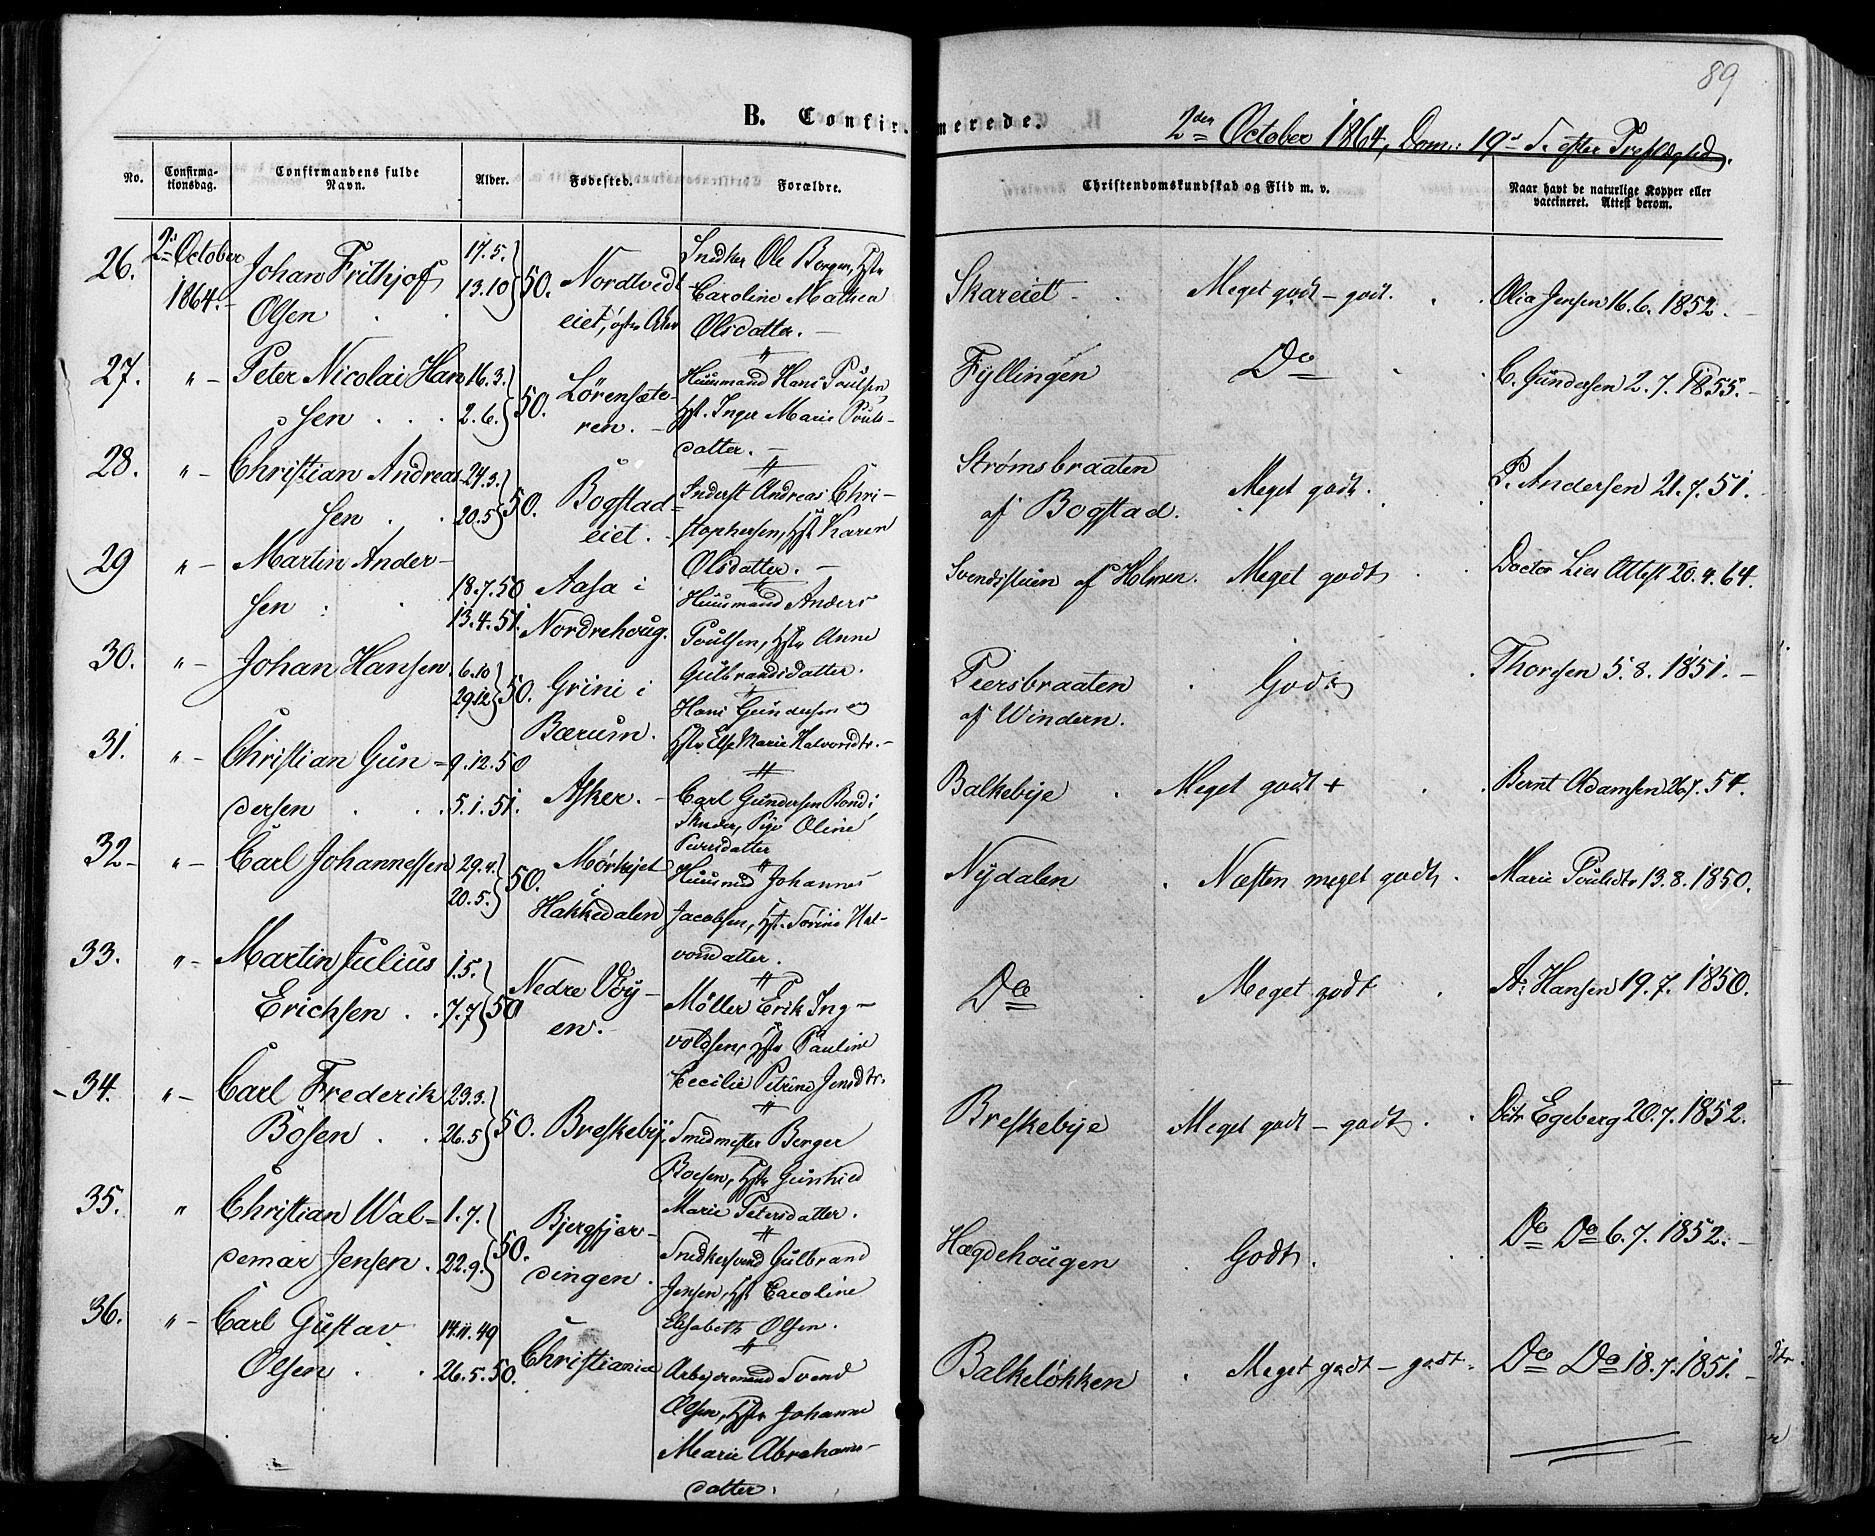 89
B. Confirmerede.
2den October 1864, Dom: 19de S. efter
No. Confirmationsdag. Confirmandens fulde Navn. Alder. Fødested. Forældre. Christendomskundskab og Flid m. v. Naar havt de naturlige Kopper eller vaccineret. Attest derom.
26. 2. October 1864.
Johan Frithjof
Olsen
17.5.
13.10 50.
Nordtvedt
eiet, østre Aker
Snedker Ole Borger, Hstr
Caroline Mathea
Olsdatter.
Skareiet
Meget godt - godt.
Olia Jensen 16.6.1852.
27. " -
Peter Nicolai Han
sen
16.3.
2.6. 50.
Lørensæte-
ren.
Huusmand Hans Poulsen,
Hst. Inger Marie Pouls-
datter.
Fyllingen
Do
C. Gundersen 2.7.1855.
28. " -
Christian Andrea-
sen
24.3.
20.5 50.
Bogstad-
eiet.
Inderst Andreas Chri-
stophersen, Hstr Karen
Olsdatter.
Strømsbraaten
af Bogstad.
Meget godt.
P. Andersen 21.7.51.
29 " -
Martin Ander-
sen
18.7.50
13.4.51.
Aasa i
Nordrehoug.
Huusmand Anders
Poulsen, Hstr Anne
Gulbrandsdatter.
Svendstuen af Holmen.
Meget godt
Doctor Lies Attest 20.4.64.
30. " -
Johan Hansen
6.10
29.12 50.
Grini i
Bærum.
Hans Gundersen og
Hstr Else Marie Halvorsdtr.
Peersbraaten
af Windern.
Godt
Thorsen 5.8.1851.
31. " -
Christian Gun-
dersen
9.12.50
5.1.51.
Asker.
Carl Gundersen Bond i
Pige Oline
Peersdatter
Balkebye
Meget godt +
Bernt Adamsen 26.7.54.
32 " -
Carl Johannessen
29.4.
20.5. 50.
Mørkejet
i
Hakkedalen
Huusmd Johannes
Jacobsen, Hst. Sørine Hal-
vorsdatter.
Nydalen
Næsten meget godt.
Marie Poulsdtr 13.8.1850.
33. " -
Martin Julius
Erichsen
1.5.
7.7 50
Nedre Vøy-
en.
Möller Erik Ing-
voldsen, Hstr Pauline
Cecilie Petrine Jensdtr.
Do
Meget godt
A. Hansen 19.7.1850.
34. " -
Carl Frederik
Bösen
23.3.
26.5 50.
Breskeby
Smedmester Berger
Boesen, Hstr Gunhild
Marie Petersdatter.
Breskebye
Meget godt - godt
Dctr Egeberg 20.7.1852.
35. "
Christian Wal-
demar Jensen
1.7.
22.9. 50.
Bjergfjer-
dingen
Snedkersvend Gulbrand
Jensen, Hst Caroline
Elisabeth Olsen.
Hægdehougen
Godt.
Do Do 6.7.1852.
36. " -
Carl Gustav
Olsen
14.11.49
26.5.50.
Christiania
Arbejdsmand Svend
Olsen, Hstr Johanne
Marie Abrahams-
datter.
Balkeløkken
Meget godt - godt
Do Do 18.7.1851.